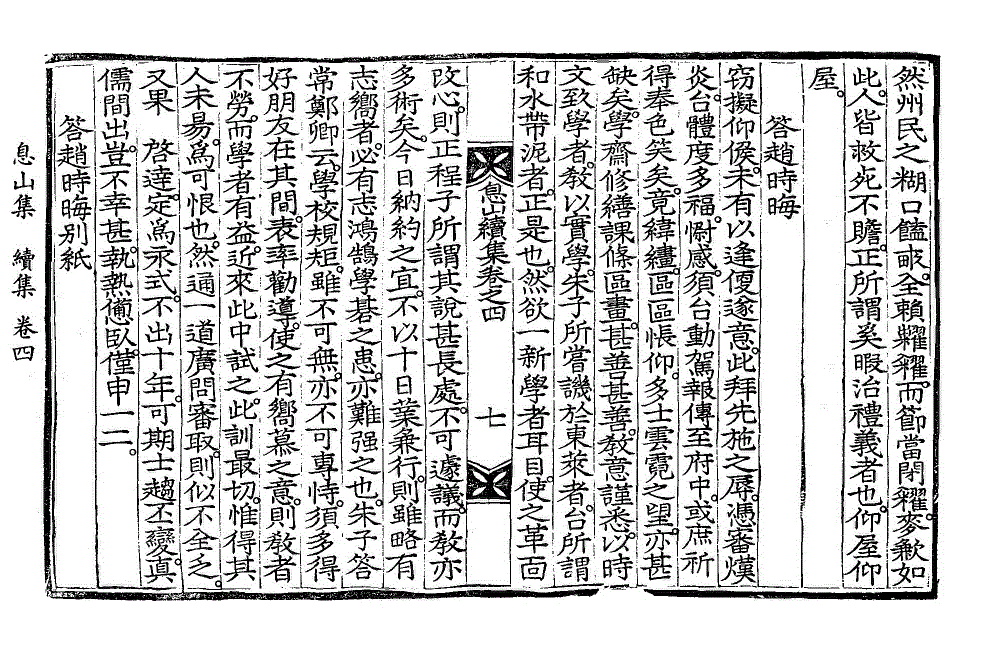 然州民之糊口饁畝。全賴糶糴。而節當閉糴。麥歉如
此。人皆救死不贍。正所謂奚暇治禮義者也。仰屋仰
屋。
答趙時晦
竊擬仰候。未有以逢便遂意。此拜先施之辱。憑審熯
炎。台體度多福。慰感。須台動駕報傳至府中。或庶祈
得奉色笑矣。竟緯繣。區區悵仰。多士雲霓之望。亦甚
缺矣。學齋修繕課條區畫。甚善甚善。敎意謹悉。以時
文致學者。敎以實學。朱子所嘗譏於東萊者。台所謂
和水帶泥者。正是也。然欲一新學者耳目。使之革面
息山續集卷之四
七
改心。則正程子所謂其說甚長處。不可遽議。而敎亦
多術矣。今日納約之宜。不以十日業兼行。則雖略有
志嚮者。必有志鴻鵠學碁之患。亦難强之也。朱子答
常鄭卿云。學校規矩。雖不可無。亦不可專恃。須多得
好朋友在其間。表率勸導。使之有嚮慕之意。則敎者
不勞。而學者有益。近來此中試之。此訓最切。惟得其
人未易。爲可恨也。然通一道廣問審取。則似不全乏。
又果 啓達。定爲永式。不出十年。可期士趨丕變。眞
儒間出。豈不幸甚。執熱憊臥。僅申一二。
答趙時晦別紙
息山集 續集 卷四